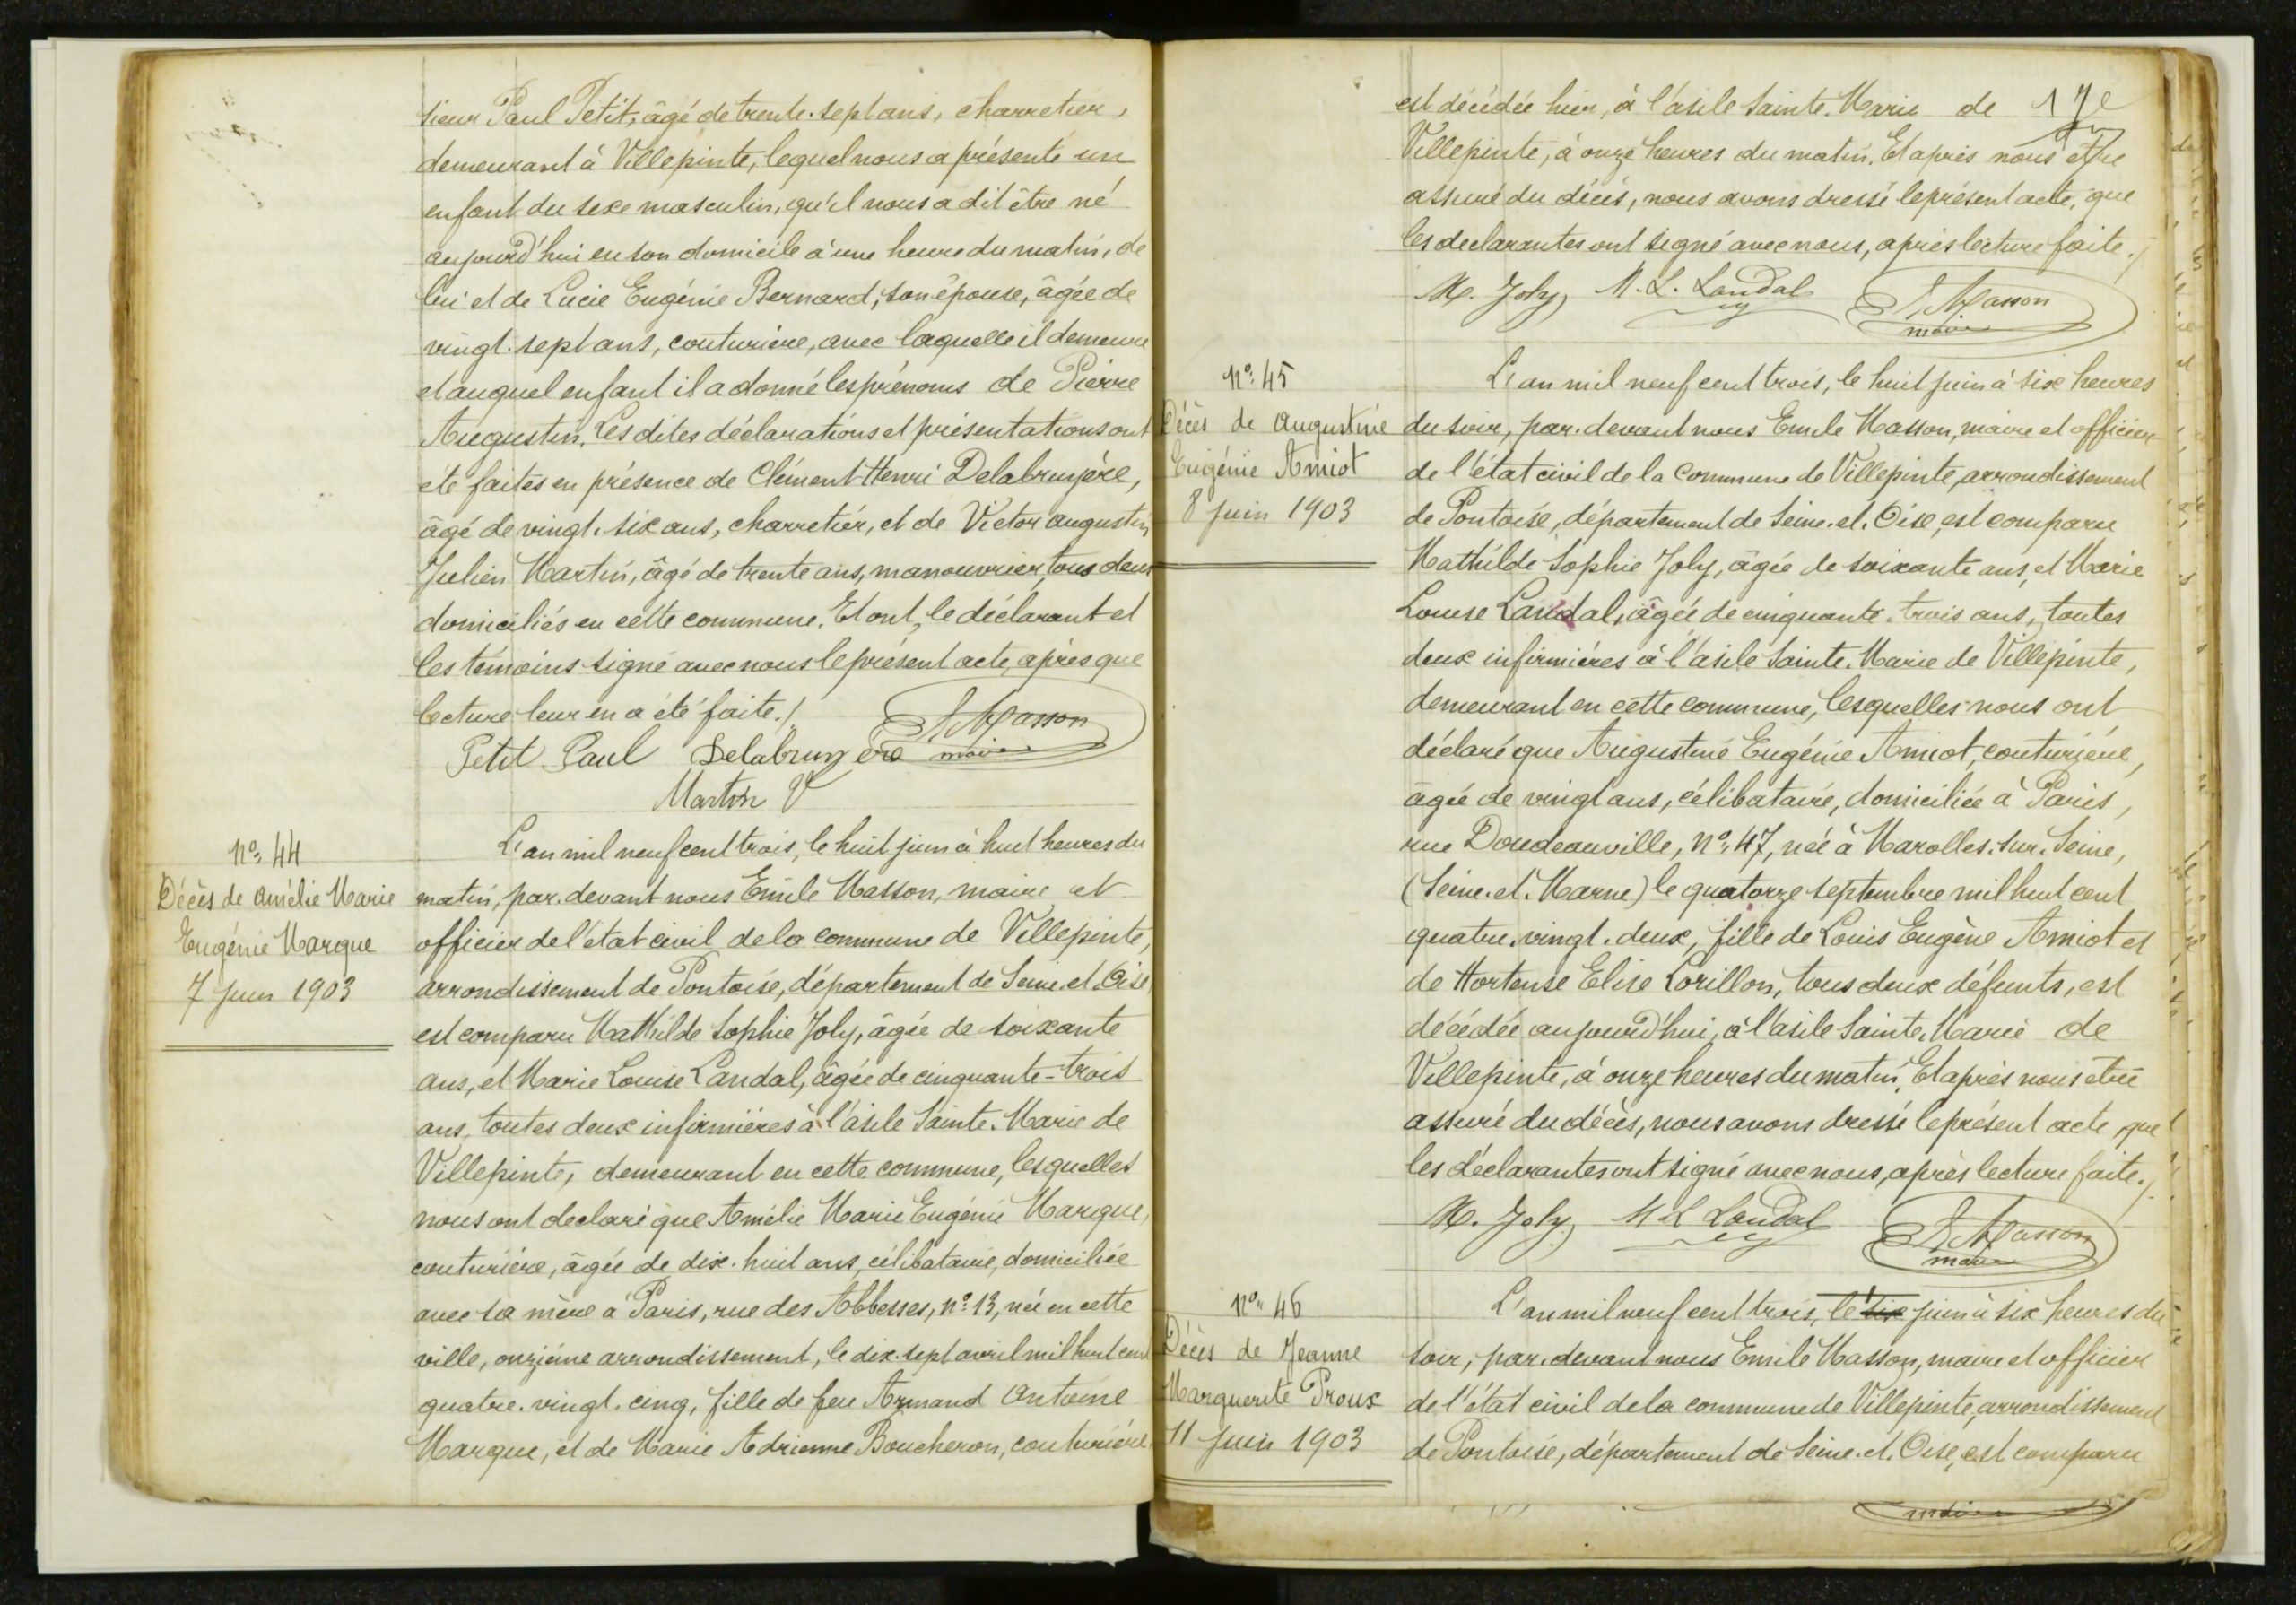 sieur Paul Petit, âgé de trente-sept ans, charretier,
demeurant à Villepinte, lequel nous a présenté un
enfant du sexe masculin, qu'il nous a dit être né
aujourd'hui en son domicile à une heure du matin, de
lui et de Lucie Eugénie Bernard, son épouse, âgée de
vingt-sept ans, couturière, avec laquelle il demeure
et auquel enfant il a donné les prénoms de Pierre
Augustin. Les dites déclarations et présentations ont
été faites en présence de Clément Henri Delabruyère,
âgé de vingt-six ans, charretier, et de Victor Augustin
Julien Martin, âgé de trente ans, manouvrier, tous deux
domiciliés en cette commune. Et ont, le déclarant et
les témoins signé avec nous le présent acte, après que
lecture leur en a été faite./.
Masson
Petit Paul Delabruyère maire
Martin V
No 44
Décès de Amélie Marie
Eugénie Marque
7 Juin 1903
L'an mil neuf cent trois, le huit juin à huit heures du
matin, par-devant nous Emile Masson, maire et
officier de l'état civil de la commune de Villepinte,
arrondissement de Pontoise, département de Seine-et-Oise,
est comparu Mathilde Sophie Joly, âgée de soixante
ans, et Marie Louise Landal, âgée de cinquante-trois
ans, toutes deux infirmières à l'asile Sainte-Marie de
Villepinte, demeurant en cette commune, lesquelles
nous ont declaré que Amélie Marie Eugénie Marque,
couturière, âgée de dix-huit ans, célibataire, domiciliée
avec sa mère à Paris, rue des Abbesses, no 13, née en cette
ville, onzième arrondissement, le dix-sept avril mil huit cent
quatre-vingt-cinq, fille de feu Armand Antoine
Marque, et de Marie Adrienne Boucheron, couturière,
17e
est décédée hier, à l'asile Sainte-Marie de
Villepinte, à onze heures du matin. Et après nous être
assuré du décès, nous avons dressé le présent acte, que
les declarantes ont signé avec nous, après lecture faite./.
M. Joly M. L. Landal Masson
maire
No 45
Décès de Augustine
Eugénie Amiot
8 Juin 1903
L'an mil neuf cent trois, le huit juin à six heures
du soir, par-devant nous Emile Masson, maire et officier
de l'état civil de la commune de Villepinte, arrondissement
de Pontoise, département de Seine-et-Oise, est comparu
Mathilde Sophie Joly, âgée de soixante ans, et Marie
Louise Landal, âgée de cinquante-trois ans, toutes
deux infirmières à l'asile Sainte-Marie de Villepinte,
demeurant en cette commune, lesquelles nous ont
déclaré que Augustine Eugénie Amiot, couturière,
âgée de vingt ans, célibataire, domiciliée à Paris,
rue Doudeauville, no 47, née à Marolles-sur-Seine,
(Seine-et-Marne) le quatorze septembre mil huit cent
quatre-vingt-deux, fille de Louis Eugène Amiot et
de Hortense Elise Lorillon, tous deux défunts, est
décédée aujourd'hui, à l'asile Sainte-Marie de
Villepinte, à onze heures du matin. Et après nous être
assuré du décès, nous avons dressé le présent acte, que
les déclarantes ont signé avec nous, après lecture faite./.
M. Joly M L Landal Masson
maire
No 46
Décès de Jeanne
Marguerite Proux
11 Juin 1903
L'an mil neuf cent trois, le six juin à six heures du
soir, par-devant nous Emile Masson, maire et officier
de l'état civil de la commune de Villepinte, arrondissement
de Pontoise, département de Seine-et-Oise, est comparu
maire